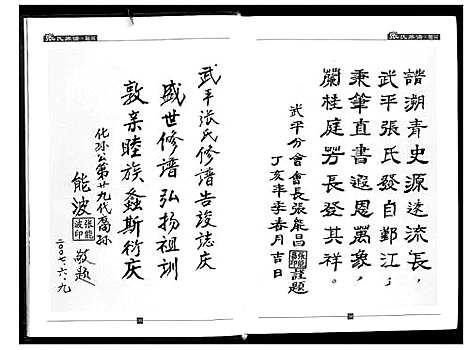 張氏族譜·題詞
譜溯青史源遠流長，
武平張氏發自鄞江；
秉筆直書遐思萬象，
蘭桂庭芳長發其祥。
武平分會會長張能昌
謹題
丁亥年季春月吉日
張氏族譜·題詞
武平张氏修谱告竣誌庆
盛世修谱 弘扬祖训
敦亲睦族 螽斯衍庆
化孙公第廿九代裔孙
能波
张能波印
敬题
二〇〇七.六.九